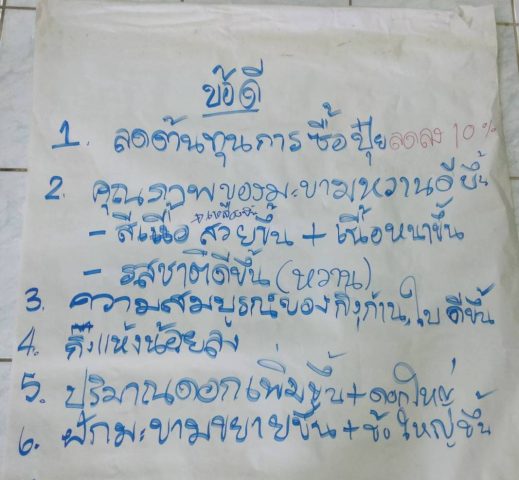 ข้อดี
1. ลดต้นทุนการซื้อปุ๋ย ลดลง 10%
2. คุณภาพของมะขามหวานดีขึ้น
- สีเนื้อ สวยขึ้น + เนื้อหนาขึ้น
- รสชาติดีขึ้น (หวาน)
3. ความสมบูรณ์ของกิ่งก้าน, ใบ ดีขึ้น
4. กิ่งแห้งน้อยลง
5. ปริมาณดอกเพิ่มขึ้น + ดอกใหญ่
6. ฝักมะขามขยายขึ้น + ข้อใหญ่ขึ้น